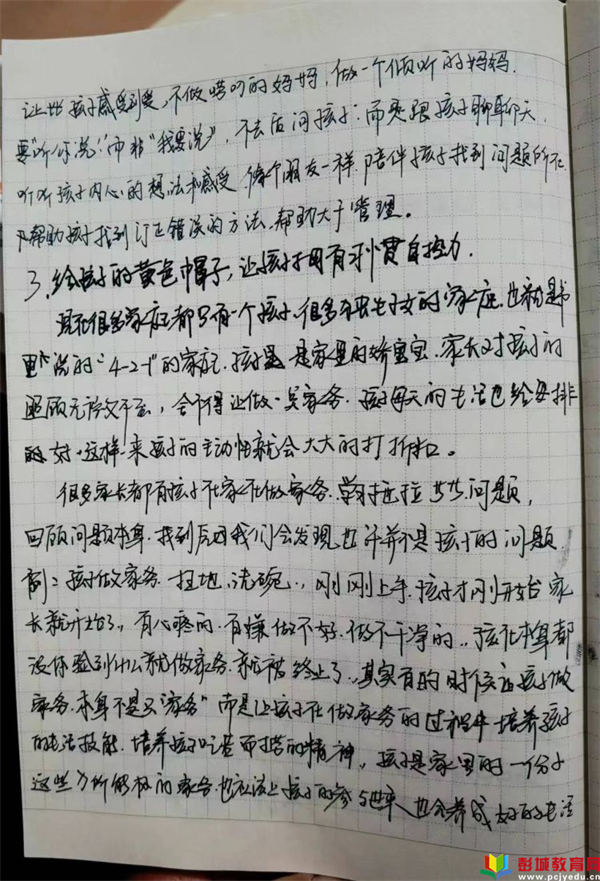 让孩子感受到爱，不做唠叨的妈妈，做一个倾听的妈妈.
要"听你说"而非"我要说"，不去质问孩子：而是跟孩子聊聊天，
听听孩子内心的想法和感受，像个朋友一样.陪伴孩子找到问题所在.
帮助孩子找到订正错误的方法.帮助大于管理。
3、给孩子的黄色帽子，让孩子拥有习惯自控力.
现在很多家庭都只有一个孩子.很多独生子女的家庭.也就是书
里说的"4-2-1"的家庭.孩子是家里的娇宝宝.家长对孩子的
照顾无微不至，舍不得让做一点家务.孩子每天的生活也给安排
的好.这样一来孩子的主动性就会大大的打折扣。
很多家长都有孩子不家不做家务.学习拖拉等等问题，
回顾问题本身.找到原因我们会发现也许并不是孩子的问题.
例：孩子做家务.扫地、洗碗..刚刚上手.孩子才刚开始家
长就开始了，有心疼的.有嫌做不好.做不干净的..孩子本身都
没体验到什么就做家务.就被终止了..其实有的时候让孩子做
家务.本身不是只"家务"而是让孩子在做家务的过程中培养孩子
的生活技能.培养孩子吃苦耐劳的精神..孩子是家里的一份子
这些力所能及的家务也应该让孩子的参与进来 也会养成好的生活
彭城教育网
www.pcjyedu.cn